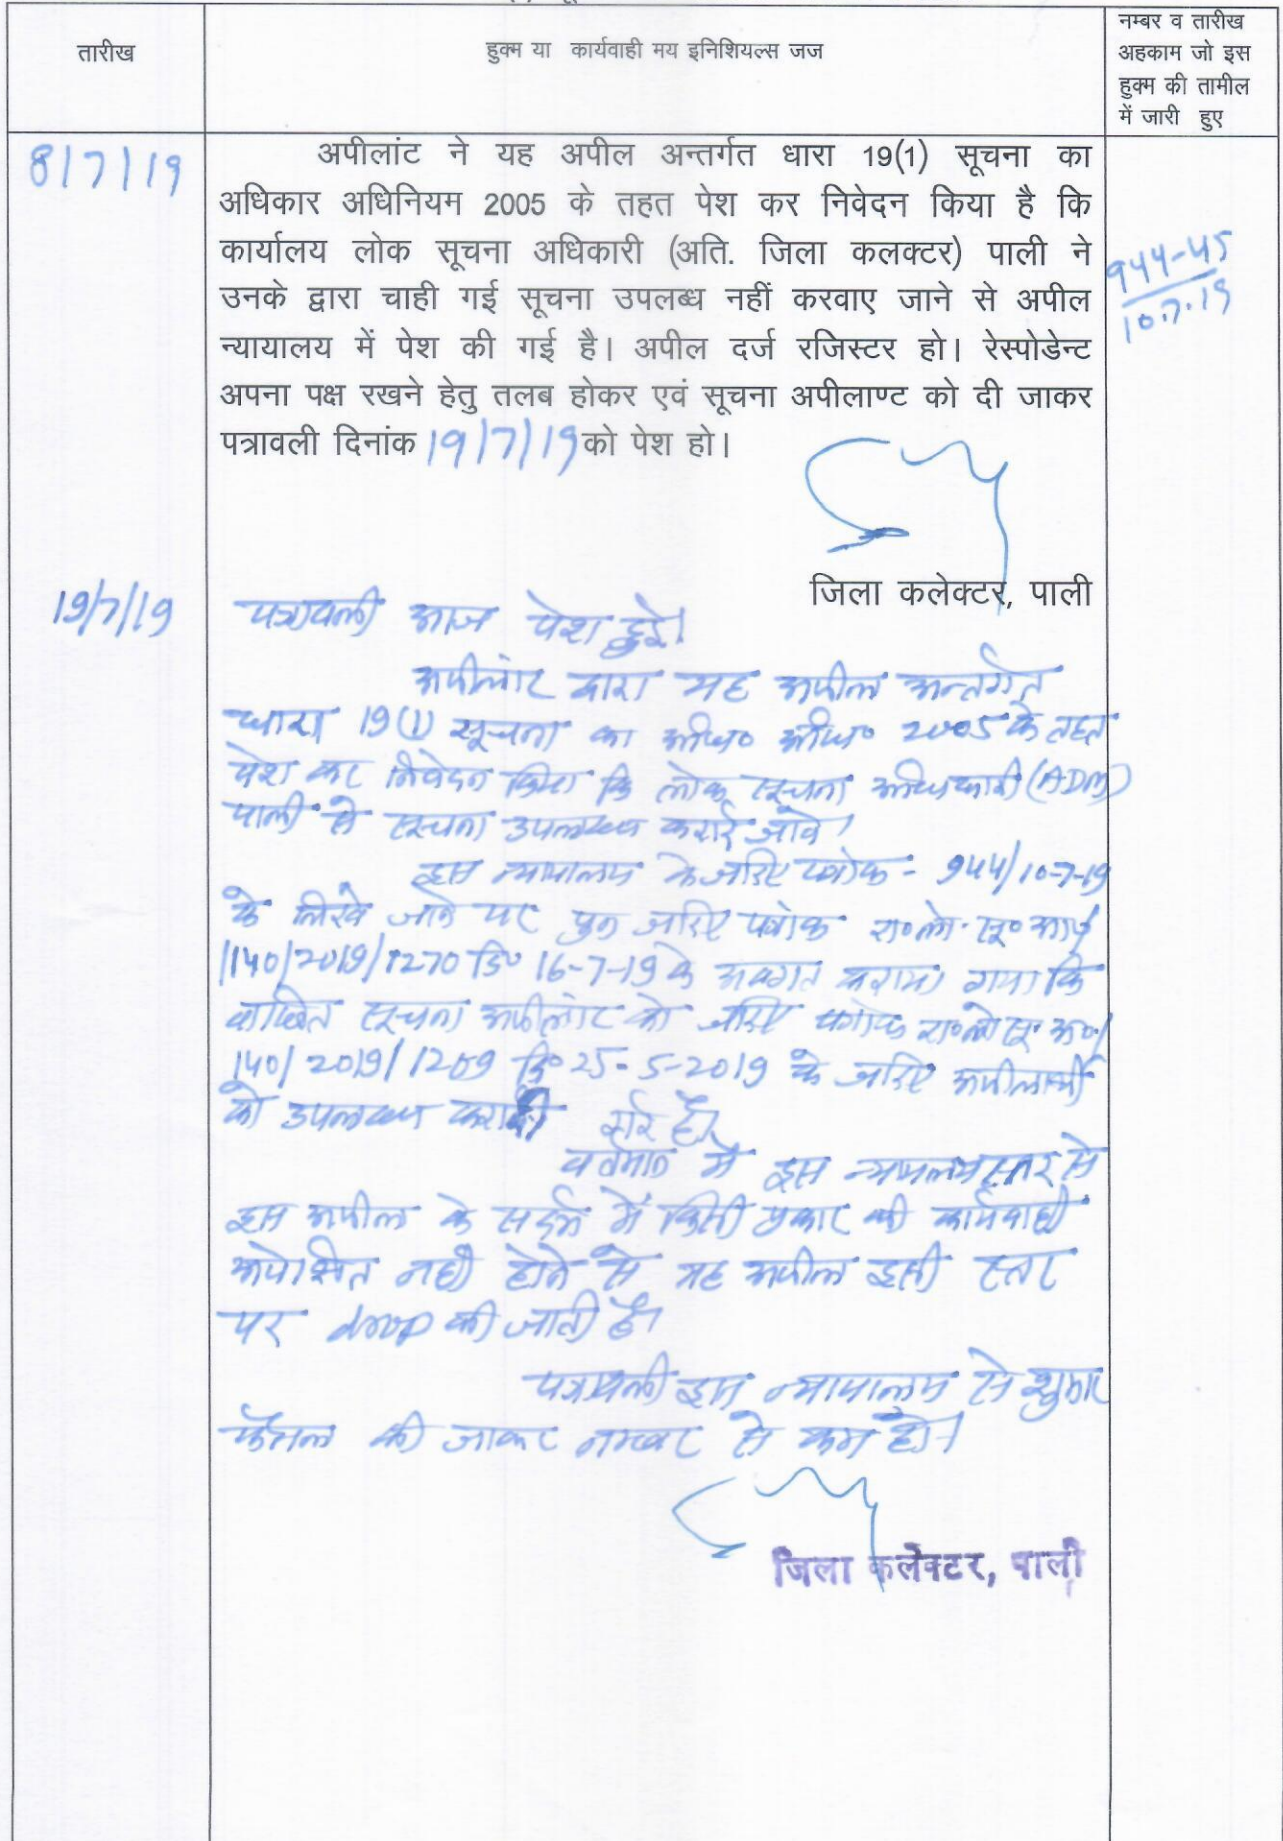 तारीख
हुक्म या कार्यवाही मय इनिशियल्स जज
नम्बर व तारीख
अहकाम जो इस
हुक्म की तामील
में जारी हुए
8/7/19
अपीलांट ने यह अपील अन्तर्गत धारा 19(1) सूचना का
अधिकार अधिनियम 2005 के तहत पेश कर निवेदन किया है कि
कार्यालय लोक सूचना अधिकारी (अति. जिला कलक्टर) पाली ने
उनके द्वारा चाही गई सूचना उपलब्ध नहीं करवाए जाने से अपील
न्यायालय में पेश की गई है। अपील दर्ज रजिस्टर हो। रेस्पोडेन्ट
अपना पक्ष रखने हेतु तलब होकर एवं सूचना अपीलाण्ट को दी जाकर
पत्रावली दिनांक 19/7/19 को पेश हो।
944-45
10.7.19
जिला कलेक्टर, पाली
19/7/19
पत्रावली आज पेश हुई।
अपीलांट द्वारा यह अपील अन्तर्गत
धारा 19(1) सूचना का अधि० अधि० 2005 के तहत
पेश कर निवेदन किया कि लोक सूचना अधिकारी (ADM)
पाली से सूचना उपलब्ध कराई जावे।
इस न्यायालय के जरिए पत्रांक - 944/10-7-19
के लिखे जाने पर पुन जरिए पत्रांक रा०लो०सू०
/140/2019/1270 दि० 16-7-19 के अवगत कराया गया कि
वांछित सूचना अपीलांट को जरिए पत्रांक रा०लो०सू०अ०/
140/2019/1209 दि० 25-5-2019 के जरिए अपीलार्थी
को उपलब्ध करा दी गई है।
वर्तमान में इस न्यायालय स्तर से
इस अपील के संदर्भ में किसी प्रकार की कार्यवाही
अपेक्षित नहीं होने से यह अपील इसी स्तर
पर drop की जाती है।
पत्रावली इस न्यायालय से शुमार
फैसल की जाकर नम्बर से कम हो।
जिला कलेक्टर, पाली